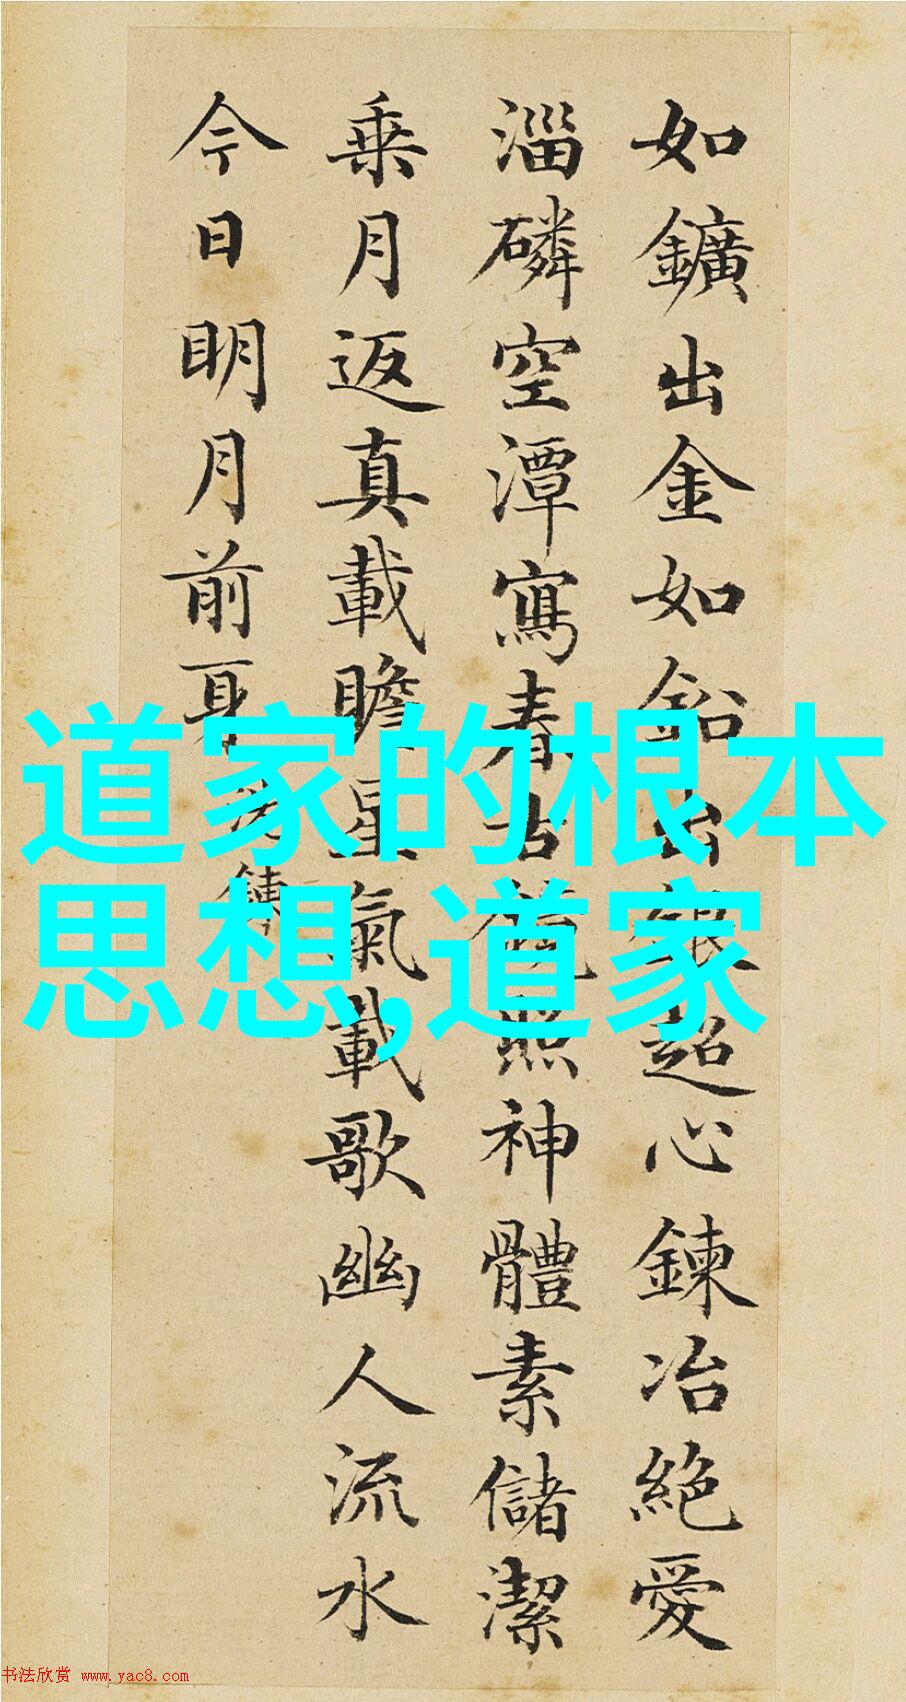 如鑛出金如鉛出銀超心鍊冶絕愛
淄磷空潭寫春古鏡照神體素儲潔
乗月返真載瞻星氣載歌幽人流水
今日明月前身洗鍊
道家的根本
思想,道家
书法欣赏 www.yac8.com